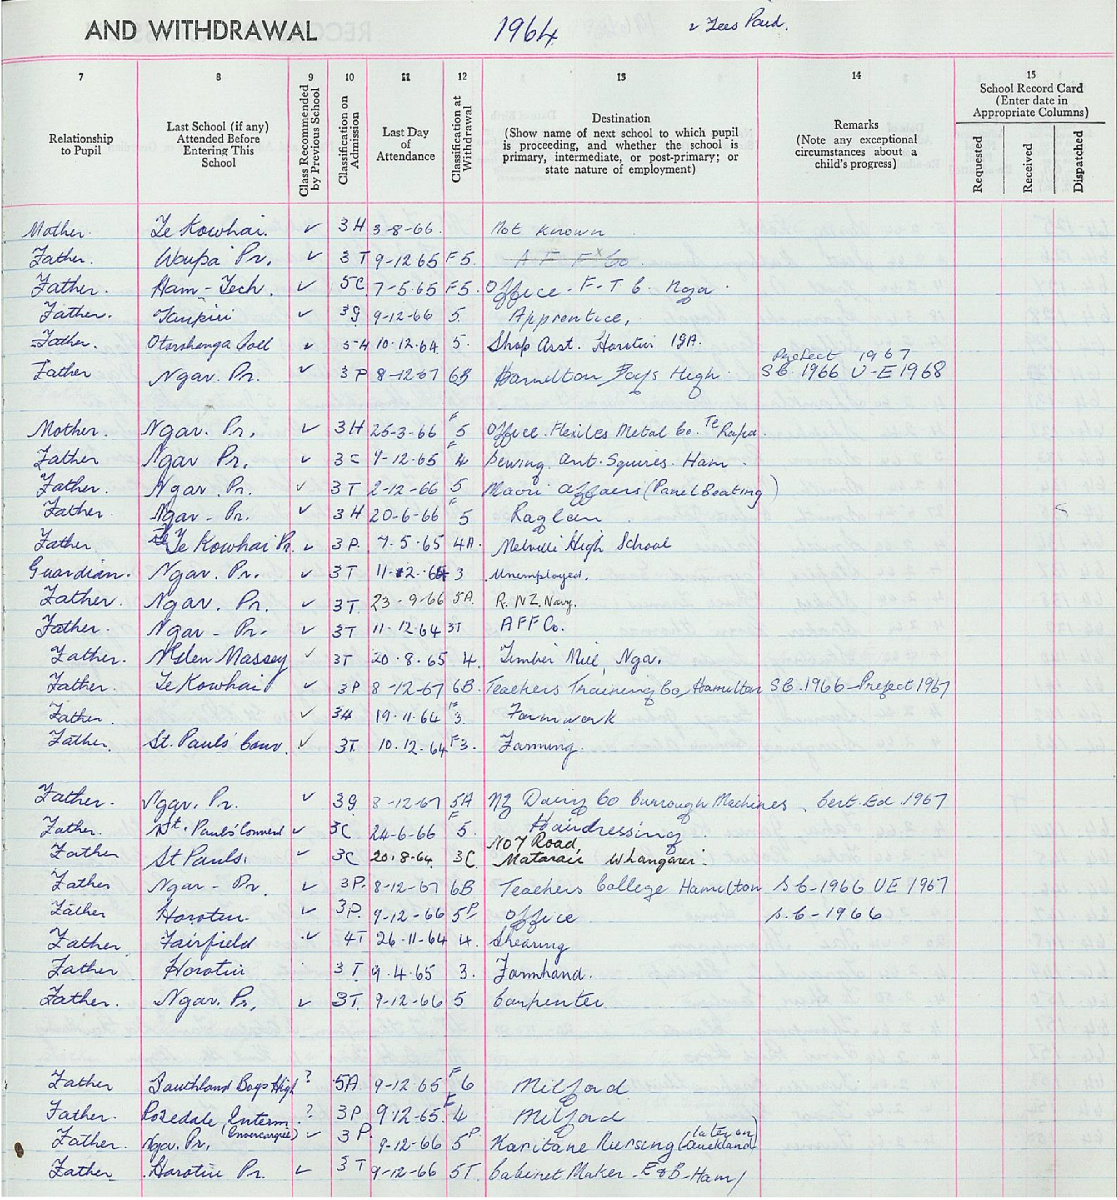 AND WITHDRAWAL 1964 Fees Paid.
7 8 9 10 11 12 13 14 15
Relationship to Pupil
Last School (if any) Attended Before Entering This School
Class Recommended by Previous School
Classification on Admission
Last Day of Attendance
Classification at Withdrawal
Destination (Show name of next school to which pupil is proceeding, and whether the school is primary, intermediate, or post-primary; or state nature of employment)
Remarks (Note any exceptional circumstances about a child's progress)
School Record Card (Enter date in Appropriate Columns)
Requested Received Dispatched
Mother. Te Kowhai. ✓ 3H 3-8-66. Not known
Father. Waupa Pr. ✓ 3T 9-12-65 F5.
Father. Ham-Tech. ✓ 5C 7-5-65 F5. Office - F-T C. Nga.
Father. Taupiri ✓ 3G 9-12-66 5. Apprentice,
Father. ✓ 5H 10.12.64 5. Shop Asst. Horotiu IGA.
Father Ngar. Pr. ✓ 3P 8-12-67 6B Hamilton Boys High. Prefect 1967 S.C. 1966 U-E 1968
Mother. Ngar. Pr. ✓ 3H 25-3-66 F5 Office. Metal Co. Te Rapa.
Father Ngar Pr. ✓ 3C 7-12-65 F4 Sewing. Squires. Ham.
Father. Ngar. Pr. ✓ 3T 2-12-66 5 Maori Affairs (Panel Beating)
Father Ngar - Pr. ✓ 3H 20-6-66 F5 Raglan
Father Te Kowhai Pr. ✓ 3P. 7.5.65 4A. Melville High School
Guardian. Ngar. Pr. ✓ 3T 11-12-64 3 Unemployed.
Father. Ngar. Pr. ✓ 3T. 23-9-66 5A R.N.Z. Navy.
Father. Ngar - Pr. ✓ 3T 11-12-64 3T A F F Co.
Father. Glen Massey ✓ 3T 20.8.65 4. Timber Mill, Nga.
Father. Te Kowhai ✓ 3P 8-12-67 6B. Teachers Training Co, Hamilton S.C. 1966 - Prefect 1967
Father ✓ 3H 19.11.64 F3. Farmwork
Father. St. Pauls' Conv. ✓ 3T. 10.12.64 F3. Farming.
Father. Ngar. Pr. ✓ 3G 8-12-67 5A NZ Dairy Co Burrough Machines, Cert. Ed. 1967
Father. St. Pauls' Convent ✓ 3C 24-6-66 F5. Hairdressing
Father St Pauls. ✓ 3C 20.8.64 3C No 7 Road, Whangarei.
Father Ngar - Pr. ✓ 3P. 8-12-67 6B Teachers College Hamilton S C-1966 UE 1967
Father Horotiu ✓ 3P. 9-12-66 5P Office S.C-1966
Father Fairfield ✓ 4T 26-11-64 4. Shearing
Father Horotiu 3T 9.4.65 3. Farmhand.
Father. Ngar. Pr. ✓ 3T. 9-12-66 5 Carpenter
Father Southland Boys High ? 5A 9-12-65 F6 Milford
Father. Rosedale Interm. (Invercargill) ? 3P 9-12-65 F4 Milford
Father. Ngar. Pr. ✓ 3P. 9-12-66 5P Karitane Nursing (later on) (Auckland)
Father Horotiu Pr. ✓ 3T 9-12-66 5T Cabinet Maker - E&B - Ham/